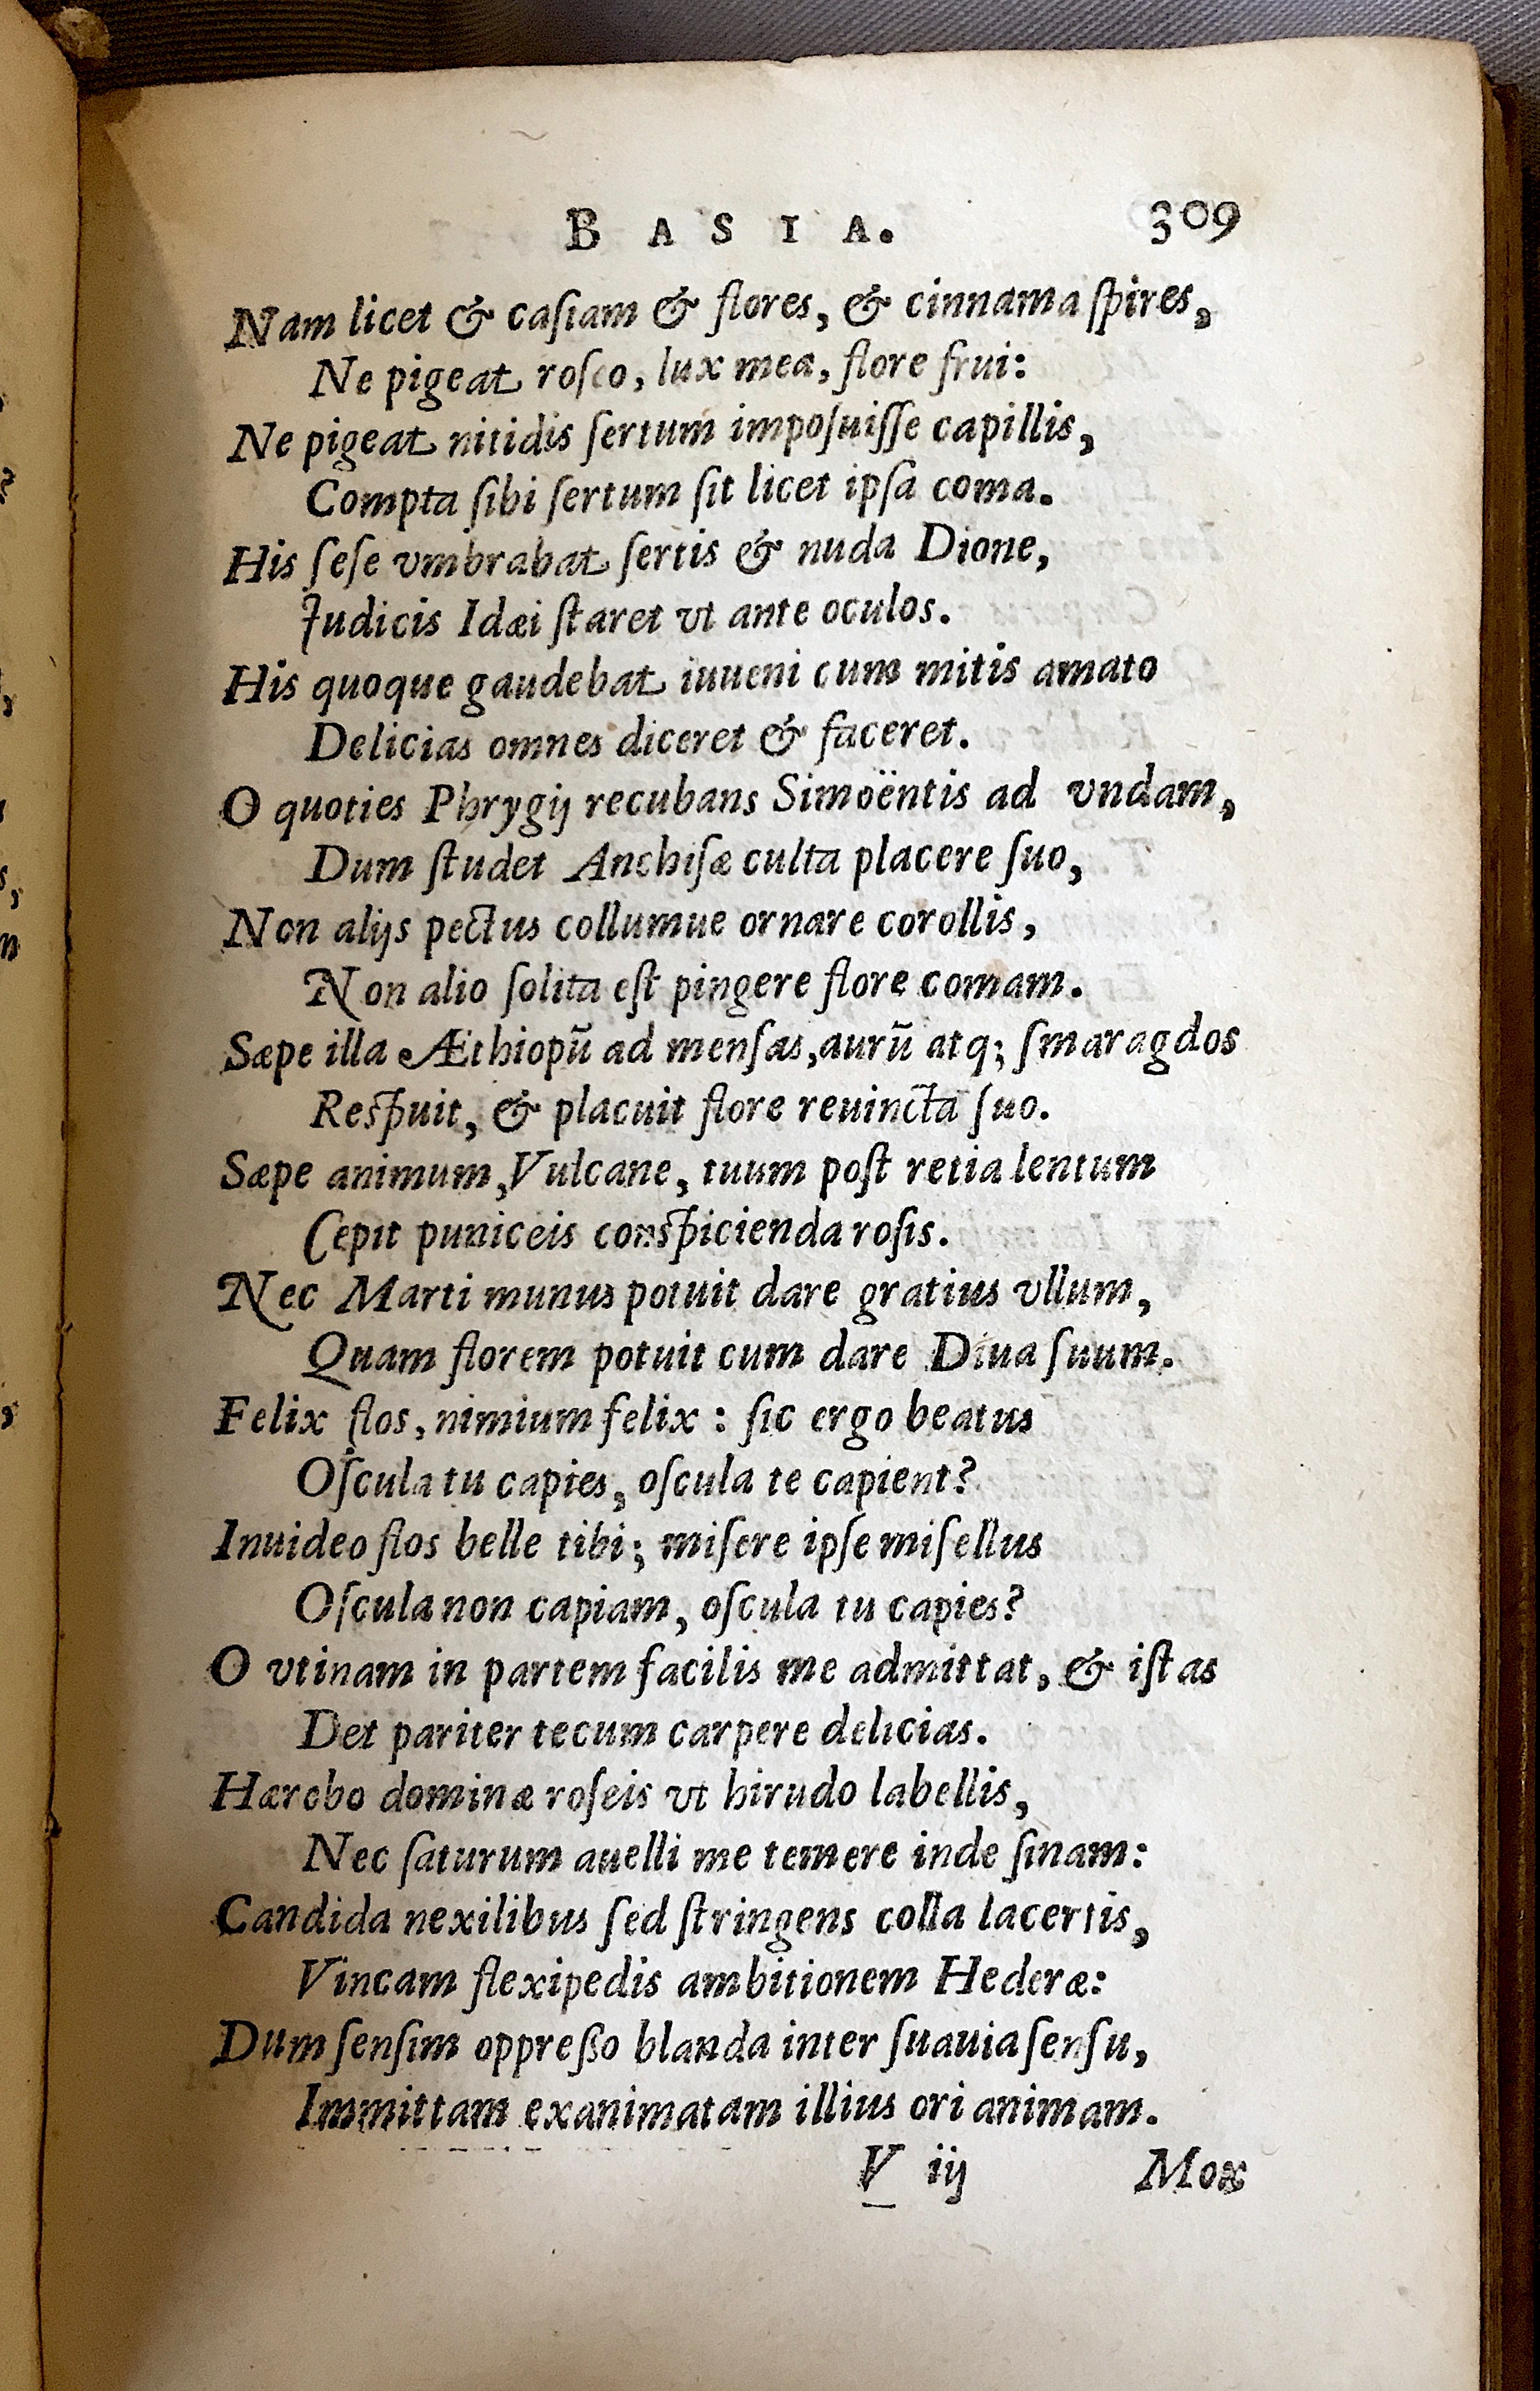 BASIA. 309
Nam licet & caſiam & flores, & cinnama ſpires,
Ne pigeat roſeo, lux mea, flore frui:
Ne pigeat nitidis ſertum impoſuiſſe capillis,
Compta ſibi ſertum ſit licet ipſa coma.
His ſeſe vmbrabat ſertis & nuda Dione,
Judicis Idæi ſtaret vt ante oculos.
His quoque gaudebat iuueni cum mitis amato
Delicias omnes diceret & faceret.
O quoties Phrygij recubans Simoëntis ad vndam,
Dum ſtudet Anchiſæ culta placere ſuo,
Non alijs pectus collumue ornare corollis,
Non alio ſolita eſt pingere flore comam.
Sæpe illa Æthiopū ad menſas, aurū atq; ſmaragdos
Reſpuit, & placuit flore reuincta ſuo.
Sæpe animum, Vulcane, tuum poſt retia lentum
Cepit puniceis conſpicienda roſis.
Nec Marti munus potuit dare gratius vllum,
Quam florem potuit cum dare Diua ſuum.
Felix flos, nimium felix: ſic ergo beatus
Oſcula tu capies, oſcula te capient?
Inuideo flos belle tibi; miſere ipſe miſellus
Oſcula non capiam, oſcula tu capies?
O vtinam in partem facilis me admittat, & iſtas
Det pariter tecum carpere delicias.
Hærebo dominæ roſeis vt hirudo labellis,
Nec ſaturum auelli me temere inde ſinam:
Candida nexilibus ſed ſtringens colla lacertis,
Vincam flexipedis ambitionem Hederæ:
Dum ſenſim oppreßo blanda inter ſuauia ſenſu,
Immittam exanimatam illius ori animam.
V iij Mox